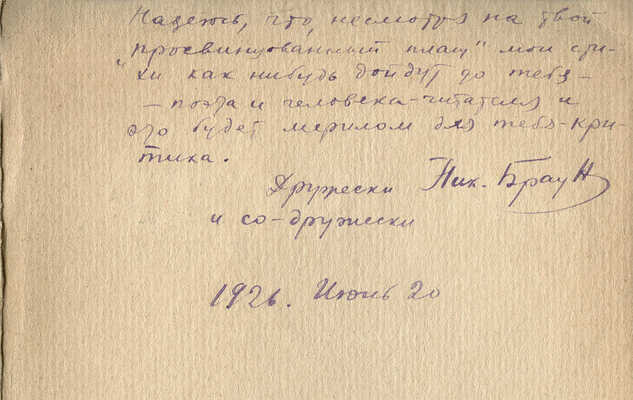 Надеюсь, что, несмотря на твой
"просвинцованный плащ" мои сти-
хи как нибудь дойдут до тебя -
- поэта и человека-читателя и
это будет мерилом для тебя-кри-
тика.
Дружески Ник. Браун
и со-дружески
1926. Июнь 20